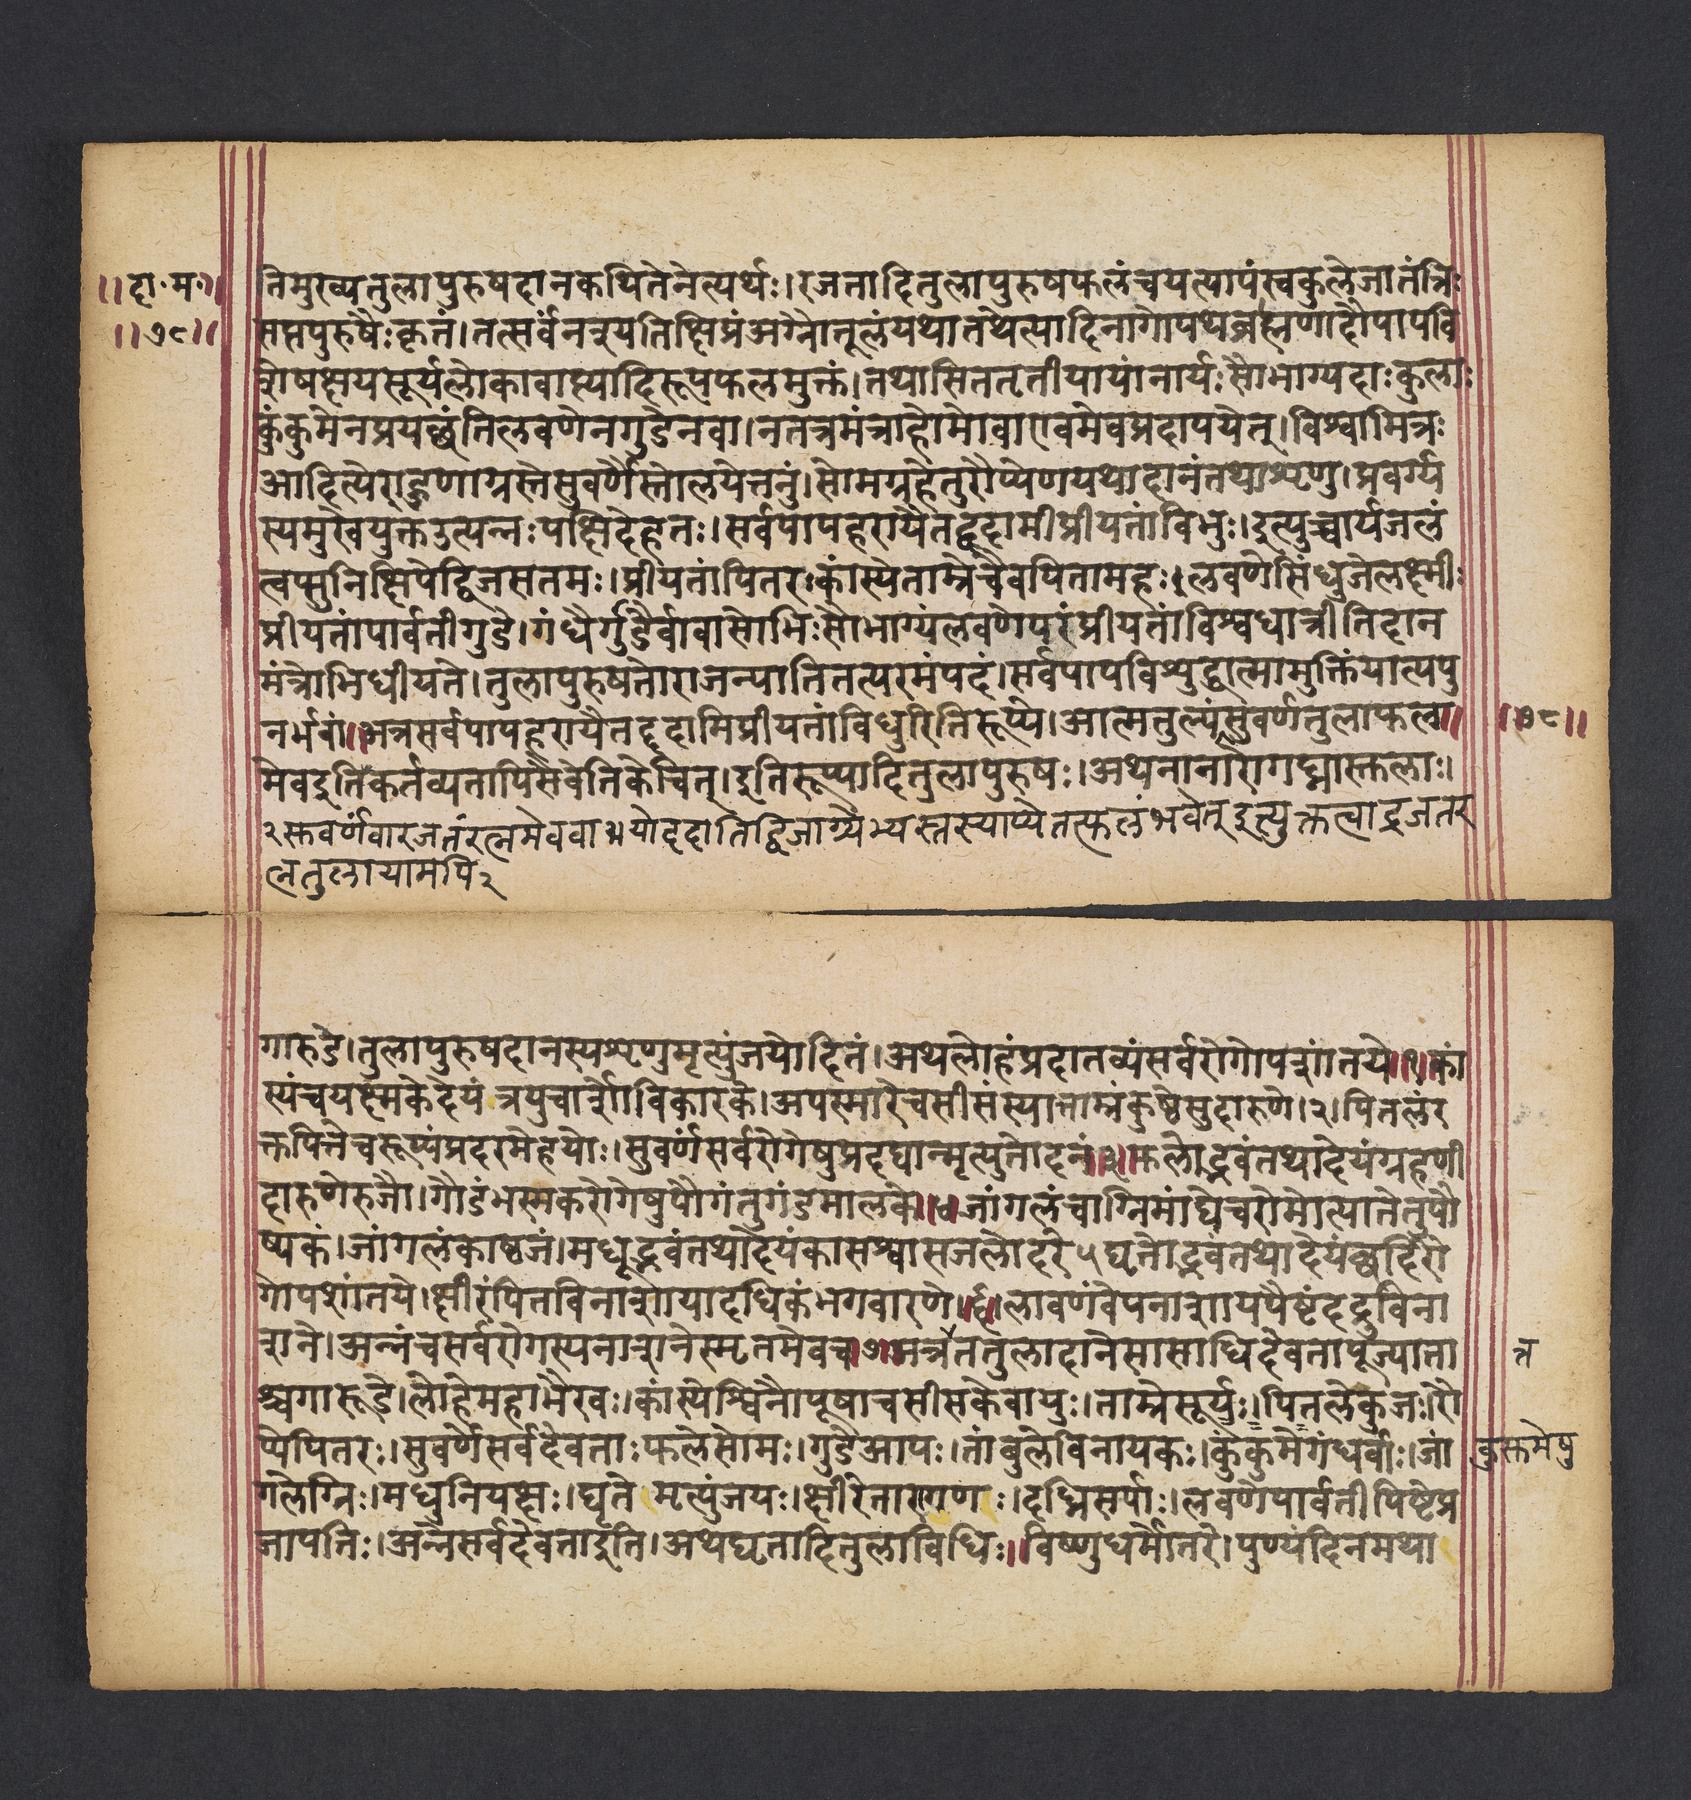 ॥दा॰म॰॥
॥७८॥
तिमुख्यतुलापुरुषदानकथितेनेत्यर्थः।रजतादितुलापुरुषफलंचयत्पापंस्वकुलेजातंत्रिः
सप्तपुरुषैःकृतं।तत्सर्वंनश्यतिक्षिप्रंअग्नौतूलंयथातथेत्यादिनागोपथब्राह्मणादौपापवि
शेषक्षयसूर्यलोकावाप्त्यादिरूपफलमुक्तं।तथासिततृतीयायांनार्यःसौभाग्यदाःकुलाः
कुंकुमेनप्रयच्छंतिलवणेनगुडेनवा।नतत्रमंत्राहोमोवाएवमेवप्रदापयेत्।विश्वामित्रः
आदित्येराहुणाग्रस्तेसुवर्णैस्तोलयेत्तनुं।सोमग्रहेतुरौप्येणयथादानंतथाशृणु।प्रवर्ग्य
स्यमुखेयुक्तउत्पन्नःपक्षिदेहतः।सर्वपापहरायैतद्ददामीप्रीयतांविभुः।इत्युच्चार्यजलं
त्वप्सुनिक्षिपेद्विजसतमः।प्रीयतांपितरःकांस्येताम्रेचैवपितामहः।लवणेसिंधुजेलक्ष्मीः
प्रीयतांपार्वतीगुडे।गंधैर्गुडैर्वावासोभिःसौभाग्यंलवणेपरंप्रीयतांविश्वधात्रीतिदान
मंत्रोभिधीयते।तुलापुरुषतोराजन्यातितत्परमंपदं।सर्वपापविशुद्धात्मामुक्तिंयात्यपु
नर्भवां॥अत्रसर्वपापहरायैतद्ददामिप्रीयतांविधुरितिरूप्ये।आत्मतुल्यंसुवर्णतुलाफल॥
॥७८॥
मेवइतिकर्तव्यतापिसैवेतिकेचित्।इतिरूप्यादितुलापुरुषः।अथनानारोगघ्नास्तुलाः।
२स्तवर्णवारजतंरत्नमेववा॥योददातिद्विजाग्र्येभ्यस्तस्याप्येतत्फलंभवेत्इत्युक्तत्वाद्रजतर
त्नतुलायामपि२
गारुडे।तुलापुरुषदानस्यशृणुमृत्युंजयोदितं।अथलोहंप्रदातव्यंसर्वरोगोपशांतये॥१॥कां
स्यंचयक्ष्मकेदेयं त्रपुचार्शोविकारके।अपस्मारेचसीसंस्यात्ताम्रंकुष्ठेसुदारुणे।२।पितलंर
क्तपित्तेचरूप्यंप्रदरमेहयोः।सुवर्णंसर्वरोगेषुप्रदद्यान्मृत्युनोदनं॥३॥फलोद्भवंतथादेयंग्रहणी
दारुणेरुजौ।गौडंभस्मकरोगेषुपौगंतुगंडमालके॥४जांगलंचाग्निमांद्येचरोमोत्पातेतुपौ
ष्पकं।जांगलंकाष्ठजं।मधूद्भवंतथादेयंकासश्वासजलोदरे५घृतोद्भवंतथादेयंछर्दिरो
गोपशांतये।क्षीरंपित्तविनाशायादधिकंभगवारणे।६॥लावणंवेपनाशायपैष्टंदद्रुविना
शने।अन्नंचसर्वरोगस्यनाशनेस्मृतमेवच॥७॥मत्रेततुलादानेसासाधिदेवतापूज्याता
त्र
श्चगारूडे।लोहेमहाभैरवः।कांस्येश्विनौपूषाचसीसकेवायुः।ताम्रेसूर्यः।पितलेकुजः।रौ
प्येपितरः।सुवर्णेसर्वदेवताःफलेसोमः।गुडेआपः।तांबुलेविनायकः।कुंकुमेगंधर्वाः।जां
कुस्तमेषु
गलेग्निः।मधुनियक्षः।घृते मृत्युंजयः।क्षीरेतारागणः।दध्निसर्पाः।लवणेपार्वतीपिष्टेप्र
जापतिः।अन्नेसर्वदेवताइति।अथघृतादितुलाविधिः॥विष्णुधर्मोत्तरे।पुण्यंदिनमथा